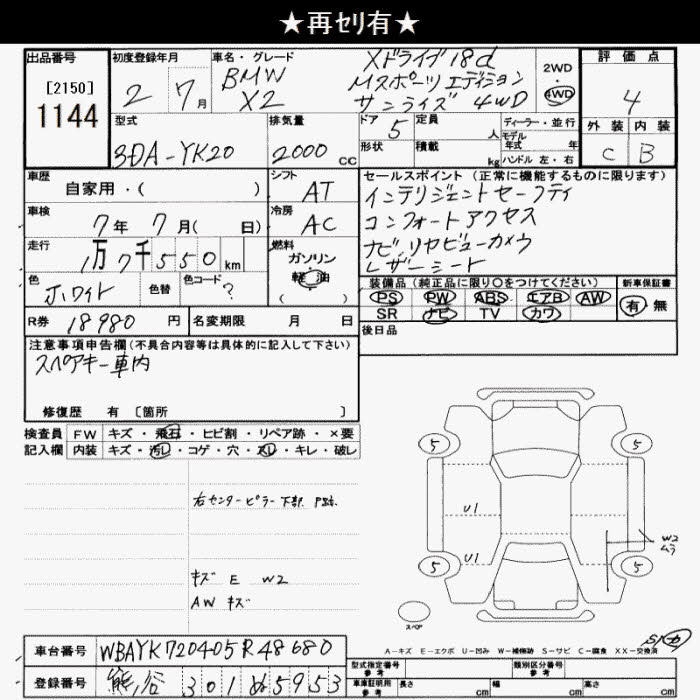 ★再セリ有★
出品番号 初度登録年月 車名・グレード
[2150]
1144
2 7月
BMW
X2
Xドライブ18d
Mスポーツエディション
サンライズ 4WD
2WD
・
4WD
評価点
4
外装 内装
C B
型式
3DA-YK20
排気量
2000 CC
ドア 5
形状
定員 人
積載 kg
ディーラー・並行
モデル年式 年
ハンドル 左・右
車歴
自家用・( )
シフト AT
車検
7年 7月( 日)
冷房 AC
走行
1万7千550km
燃料
ガソリン
軽油
( )
色
ホワイト
色替
色コード
?
R券 18980円
名変期限 月 日
セールスポイント(正常に機能するものに限ります)
インテリジェントセーフティ
コンフォートアクセス
ナビ、リヤビューカメラ
レザーシート
装備品(純正品に限り○をつけてください)
PS PW ABS エアB AW
SR ナビ TV カワ
新車保証書
有・無
後日品
注意事項申告欄(不具合内容等は具体的に記入して下さい)
スペアキー車内
修復歴 有 〔箇所 〕
検査員 FW キズ・飛石・ヒビ割・リペア跡・×要
記入欄 内装 キズ・汚レ・コゲ・穴・スレ・キレ・破レ
右センターピラー下部 P跡
キズ E W2
AW キズ
5 5
U1
U1
W2
ムラ
5 5
スペア
A-キズ E-エクボ U-凹み W-補修跡 S-サビ C-腐食 XX-交換済
車台番号 WBAYK720405R48680
登録番号 熊谷 301 ぬ 5953
型式指定番号
参考
類別区分番号
参考
車庫証明用
参考
長さ cm 幅 cm 高さ cm